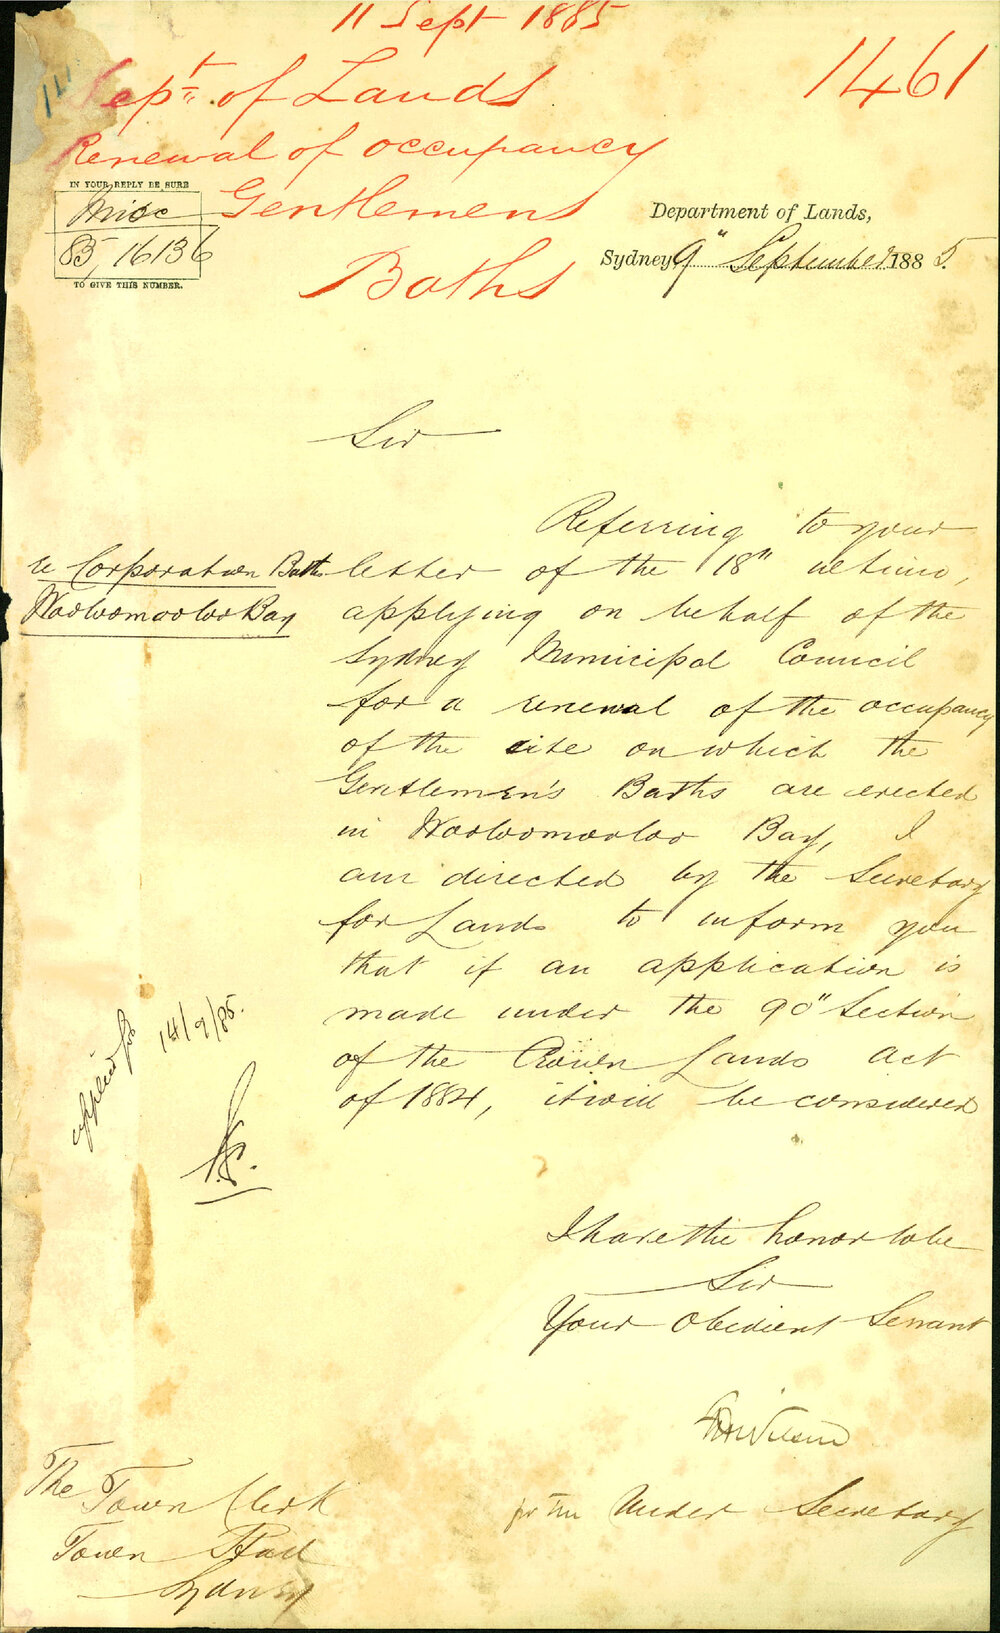 11 Sept 1885
1461
Dept. of Lands
Renewal of occupancy
Gentlemens
Baths
IN YOUR REPLY BE SURE
Misc
85, 16136
TO GIVE THIS NUMBER.
Department of Lands,
Sydney 9" September 1885.
Sir
re Corporation Baths
Wooloomooloo Bay
Referring to your
letter of the 18" ultimo,
applying on behalf of the
Sydney Municipal Council
for a renewal of the occupancy
of the site on which the
Gentlemen's Baths are erected
in Wooloomooloo Bay, I
am directed by the Secretary
for Lands to inform you
that if an application is
made under the 90" Section
of the Crown Lands Act
of 1884, it will be considered
applied for
14/9/85.
I have the honor to be
Sir
Your Obedient Servant
Wilson
for the Under Secretary
The Town Clerk
Town Hall
Sydney